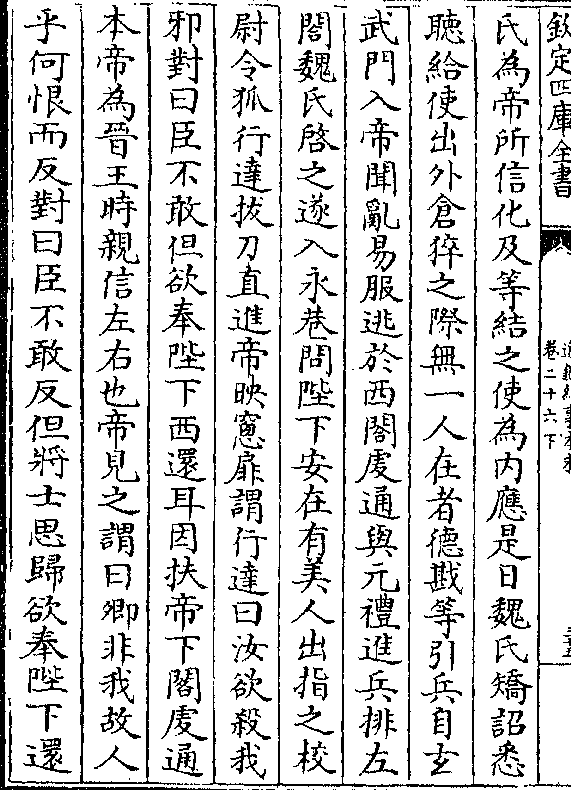 欽定四庫全書
卷二十六下
氏為帝所信化及等結之使為内應是日魏氏矯詔悉
聽給使出外倉猝之際無一人在者德戡等引兵自玄
武門入帝聞亂易服逃於西閤虔通與元禮進兵排左
閤魏氏啓之遂入永巷問陛下安在有美人出指之校
尉令狐行達拔刀直進帝映窻扉謂行達曰汝欲殺我
邪對曰臣不敢但欲奉陛下西還耳因扶帝下閤虔通
本帝為晉王時親信左右也帝見之謂曰卿非我故人
乎何恨而反對曰臣不敢反但將士思歸欲奉陛下還